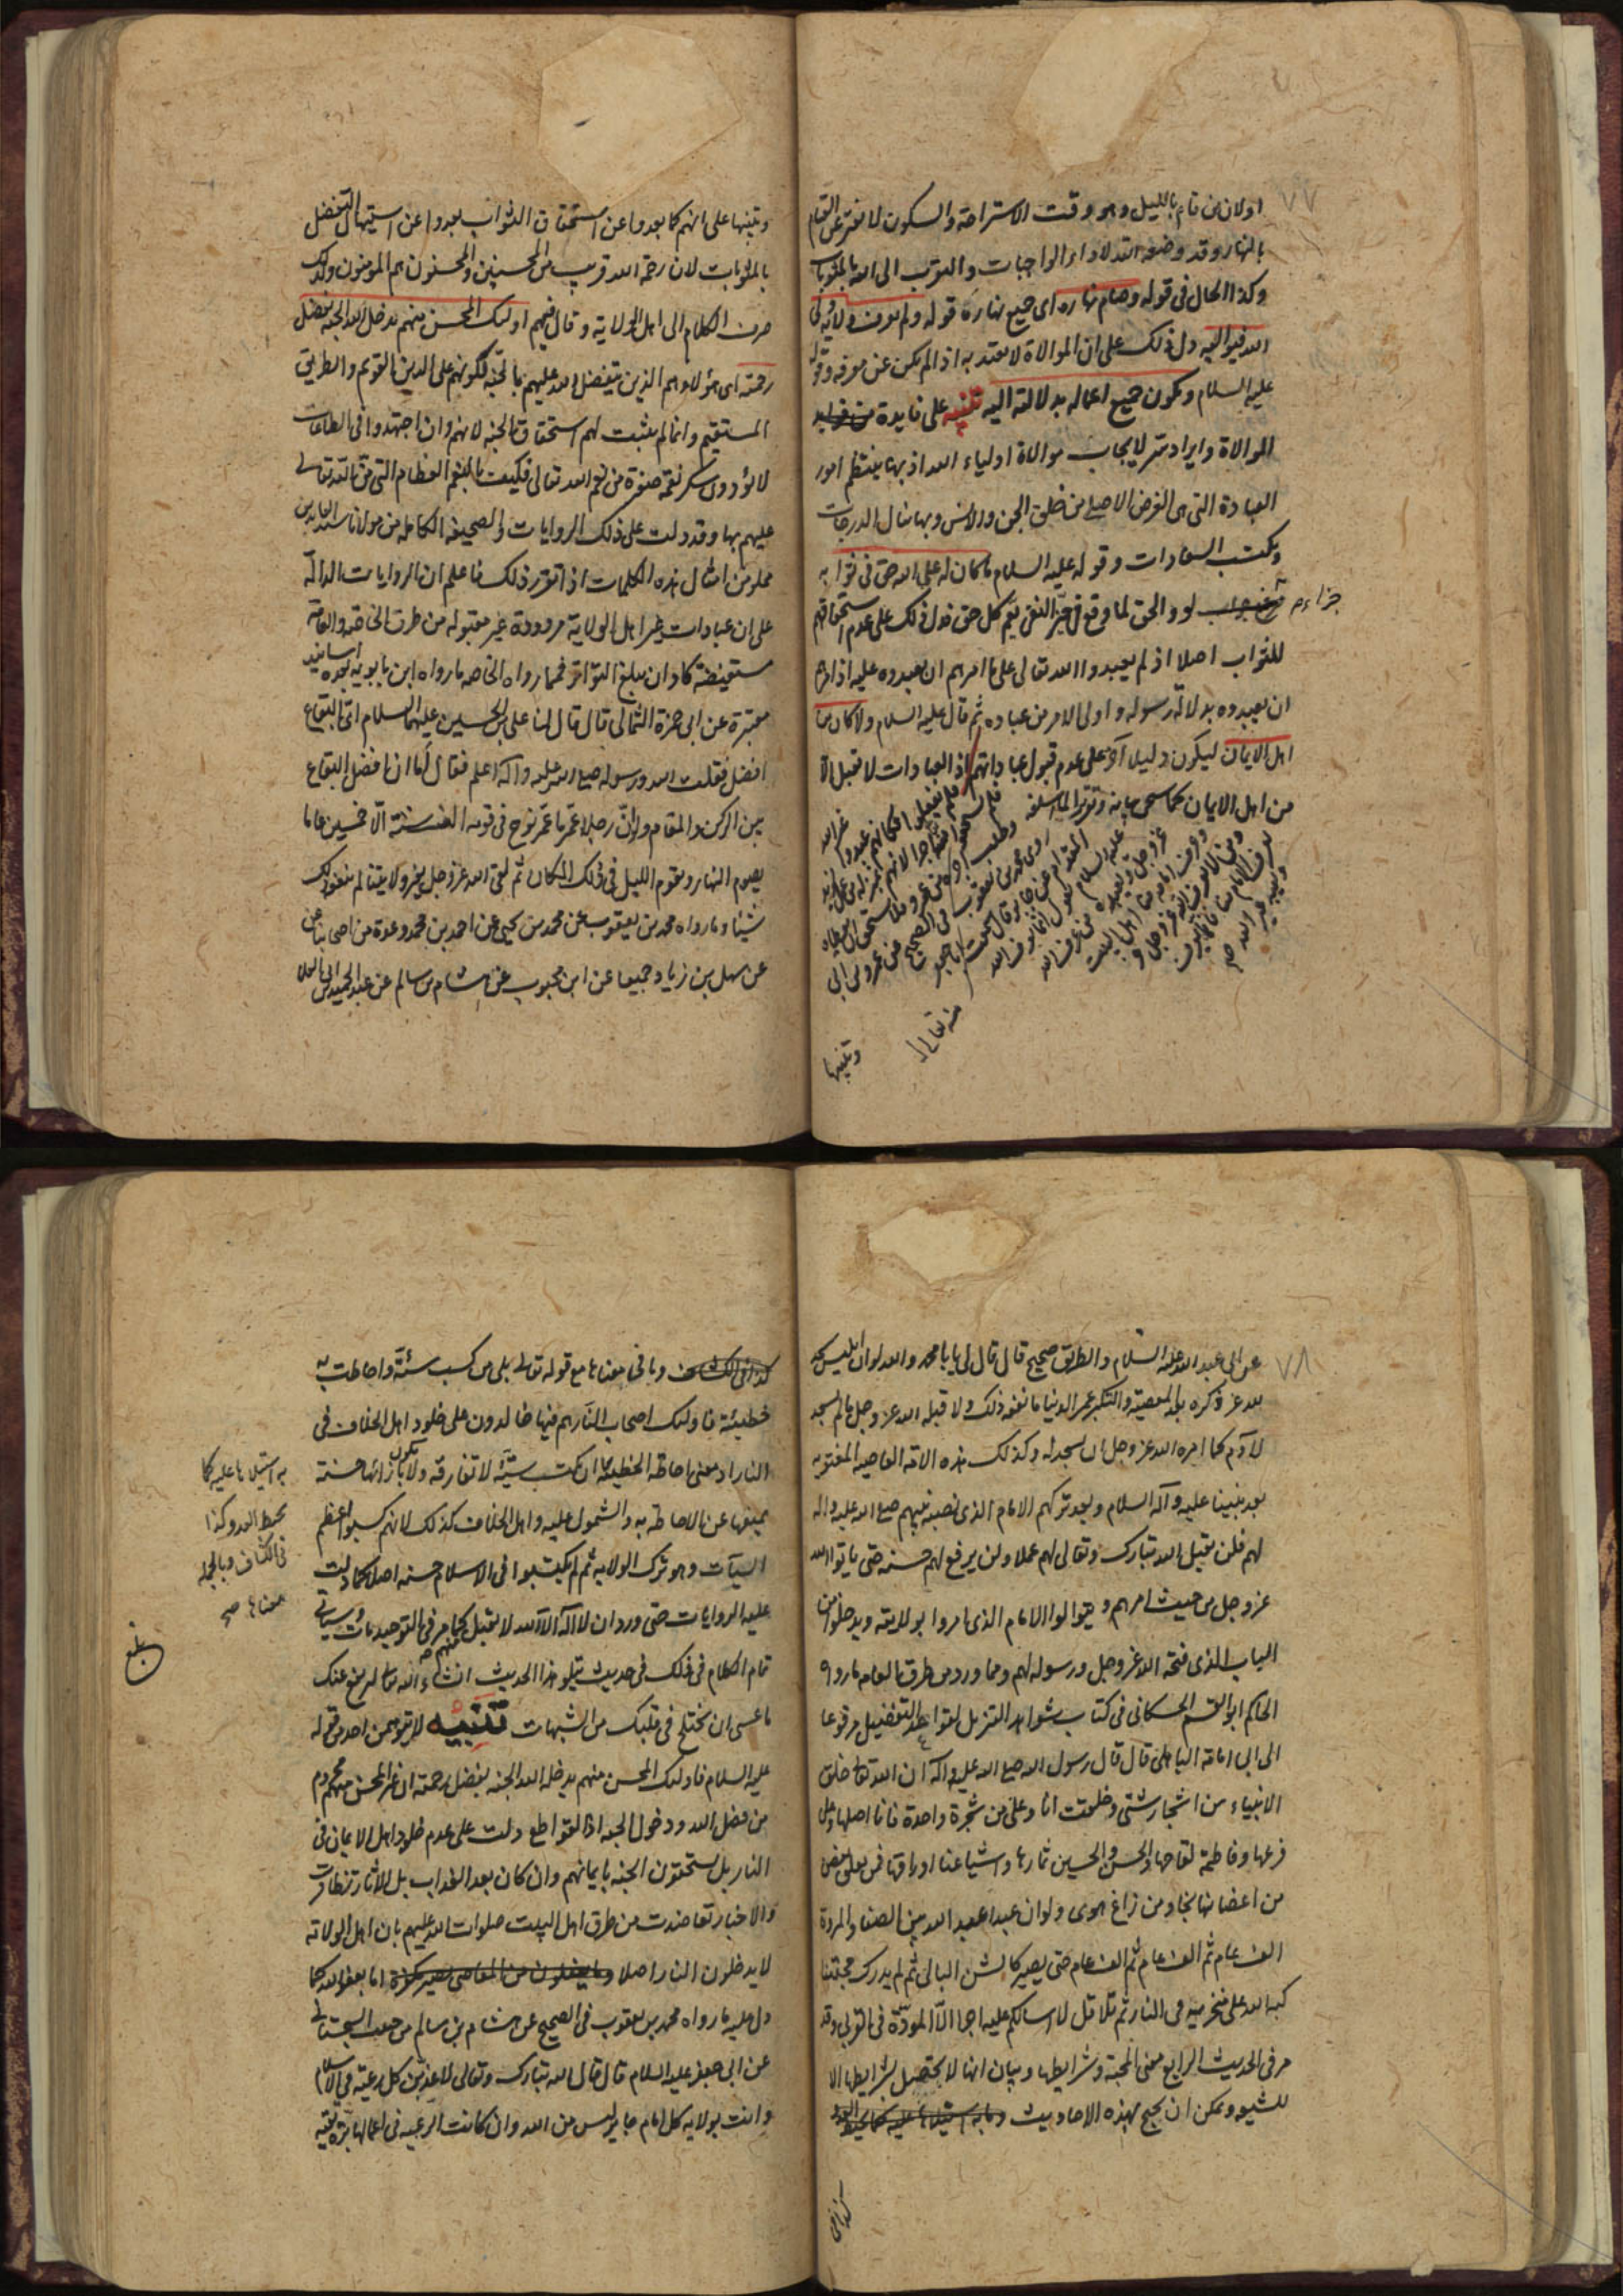 ٧٧
اولان من قام بالليل وهو وقت الاستراحة والسكون لا يفتر عن القيام
بالنهار وقد وضعه الله لاداء الواجبات والتقرب الى الله بالمثوبات
وكذا الحال فى قوله وصام نهاره اى جميع نهاره قوله ولم يعرف ولاية ولى
الله فيواليه دل ذلك على ان الموالاة لا يعتد به اذا لم يكن عن معرفة وقوله
عليه السلام ويكون جميع اعماله بدلالته اليه تنبيه على فايدة من فوايد
الموالاة وايراد سر لايجاب موالاة اولياء الله اذ بها ينتظم امور
العبادة التى هى الغرض الاصلى من خلق الجن والانس وبها ينال الدرجات
ويكتسب السعادات وقوله عليه السلام ما كان له على الله حق فى ثوابه
جزاء لو والحق لما وقع فى حيز النفى يعم كل حق فدل ذلك على عدم استحقاقهم
للثواب اصلا اذ لم يعبدوا الله تعالى على ما امرهم ان يعبدوه عليه اذ امرهم
ان يعبدوه بدلالة رسوله واولى الامر من عباده ثم قال عليه السلام ولا كان من
اهل الايمان ليكون دليلا آخر على عدم قبول عباداتهم اذ العبادات لا تقبل الا
من اهل الايمان كما سيجى بيانه
روى محمد بن يعقوب فى الصحيح عن عمرو بن ابى
المقدام عن جابر قال سمعت ابا جعفر
عليه السلام يقول انما يعرف الله
عز وجل ويعبده من عرف الله
وعرف امامه منا اهل البيت
ومن لا يعرف الله عز وجل و
يعرف الامام منا فانما يعرف
ويعبد غير الله
منه تعالى
وتنبيها
وتنبيها على انهم كما بعدوا عن استحقاق الثواب بعدوا عن استيهال التفضل
بالمثوبات لان رحمة الله قريب من المحسنين والمحسنون هم المومنون ولذلك
صرف الكلام الى اهل الولاية وقال فيهم اولئك المحسن منهم يدخل الله الجنة بفضل
رحمته اى هؤلاء هم الذين يتفضل الله عليهم بالجنة لكونهم على الدين القويم والطريق
المستقيم وانما لم يثبت لهم استحقاق الجنة لانهم وان اجتهدوا فى الطاعات
لا يؤدون شكر نعمة صغيرة من نعم الله تعالى فكيف بالنعم العظام التى من الله تعالى
عليهم بها وقد دلت على ذلك الروايات والصحيفة الكاملة من مولانا سيد العابدين
مملو من امثال هذه الكلمات اذا تقرر ذلك فاعلم ان الروايات الدالة
على ان عبادات غير اهل الولاية مردودة غير مقبولة من طرق الخاصة والعامة
مستفيضة كاد ان يبلغ التواتر فمما رواه الخاصه ما رواه ابن بابويه بعده اسانيد
معتبرة عن ابى حمزة الثمالى قال قال لنا على بن الحسين عليهما السلام اى البقاع
افضل فقلت الله ورسوله صلى الله عليه وآله اعلم فقال لنا ان افضل البقاع
بين الركن والمقام ولو ان رجلا عمّر ما عمّر نوح فى قومه الف سنة الّا خمسين عاما
يصوم النهار ويقوم الليل فى ذلك المكان ثم لقى الله عز وجل بغير ولايتنا لم ينفعه ذلك
شيئا وما رواه محمد بن يعقوب عن محمد بن يحيى عن احمد بن محمد وعدة من اصحابنا عن
عن سهل بن زياد جميعا عن ابن محبوب عن هشام بن سالم عن عبد الحميد بن ابى العلا
٧٨
عن ابى عبد الله عليه السلام والطريق صحيح قال قال لى يا با محمد والله لو ان ابليس سجد
لله عز ذكره بعد المعصية والتكبر عمر الدنيا ما نفعه ذلك ولا قبله الله عز وجل ما لم يسجد
لآدم كما امره الله عز وجل ان يسجد له وكذلك هذه الامة العاصية المفتونة
بعد نبينا عليه وآله السلام وبعد تركهم الامام الذى نصبه نبيهم صلى الله عليه واله
لهم فلن يقبل الله تبارك وتعالى لهم عملا ولن يرفع لهم حسنة حتى ياتوا الله
عز وجل من حيث امرهم ويتوالوا الامام الذى امروا بولايته ويدخلوا من
الباب الذى فتحه الله عز وجل ورسوله لهم ومما ورد من طرق العامه ما رواه
الحاكم ابو القسم الحسكانى فى كتاب شواهد التنزيل لقواعد التفضيل مرفوعا
الى ابى امامة الباهلى قال قال رسول الله صلى الله عليه واله ان الله تعالى خلق
الانبياء من اشجار شتى وخلقت انا وعلى من شجرة واحدة فانا اصلها وعلى
فرعها وفاطمة لقاحها والحسن والحسين ثمارها واشياعنا اوراقها فمن تعلق بغصن
من اغصانها نجا ومن زاغ هوى ولو ان عبدا عبد الله بين الصفا والمروة
الف عام ثم الف عام ثم الف عام حتى يصير كالشن البالى ثم لم يدرك محبتنا
كبه الله على منخريه فى النار ثم تلا قل لا اسالكم عليه اجرا الّا المودّة فى القربى وقد
مر فى الحديث الرابع معنى المحبة وشرايطها وبيان انها لا يحصل بشرايطها الا
للشيعه ويمكن ان يحتج بهذه الاحاديث وما به استيلاء عليه كما يحيط العدو
كذا فى
كذا فى الكشاف وما فى معناها مع قوله تعالى بلى من كسب سيئة واحاطت به
خطيئته فاولئك اصحاب النار هم فيها خالدون على خلود اهل الخلاف فى
النار اذ معنى احاطة الخطيئة ان يكتسب سيئة لا تفارقه ولا يكون بازائها حسنة
يمنعها عن الاحاطة به والشمول عليه واهل الخلاف كذلك لانهم كسبوا اعظم
السيآت وهو ترك الولاية ثم لم يكتسبوا فى الاسلام حسنه اصلا كما دلت
عليه الروايات حتى ورد ان لا اله الا الله لا يقبل منهم كما مر فى التوحيد مات وسياتى
تمام الكلام فى ذلك فى حديث يتلو هذا الحديث انشاء الله تعالى
ما عسى ان يختلج فى قلبك من الشبهات تنبيه لا يتوهمن احد من قوله
عليه السلام فاولئك المحسن منهم يدخله الله الجنه بفضل رحمته ان غير المحسن منهم محروم
من فضل الله ودخول الجنه اذ القواطع دلت على عدم خلود اهل الايمان فى
النار بل يستحقون الجنه بايمانهم وان كان بعد العذاب بل الاثار تظافرت
والاخبار تعاضدت من طرق اهل البيت صلوات الله عليهم بان اهل الولاية
لا يدخلون النار اصلا وما يفعلون من المعاصى يصير مكفرة اما بعفو الله كما
دل عليه ما رواه محمد بن يعقوب فى الصحيح عن هشام بن سالم عن حبيب السجستانى
عن ابى جعفر عليه السلام قال قال الله تبارك وتعالى لاعذبن كل رعية فى الاسلام
دانت بولاية كل امام جاير ليس من الله وان كانت الرعيه فى اعمالها برة تقية
به استيلاءا عليه كما
يحيط العدو كذا
فى الكشاف وبالجملة
معناها صح
بلغ